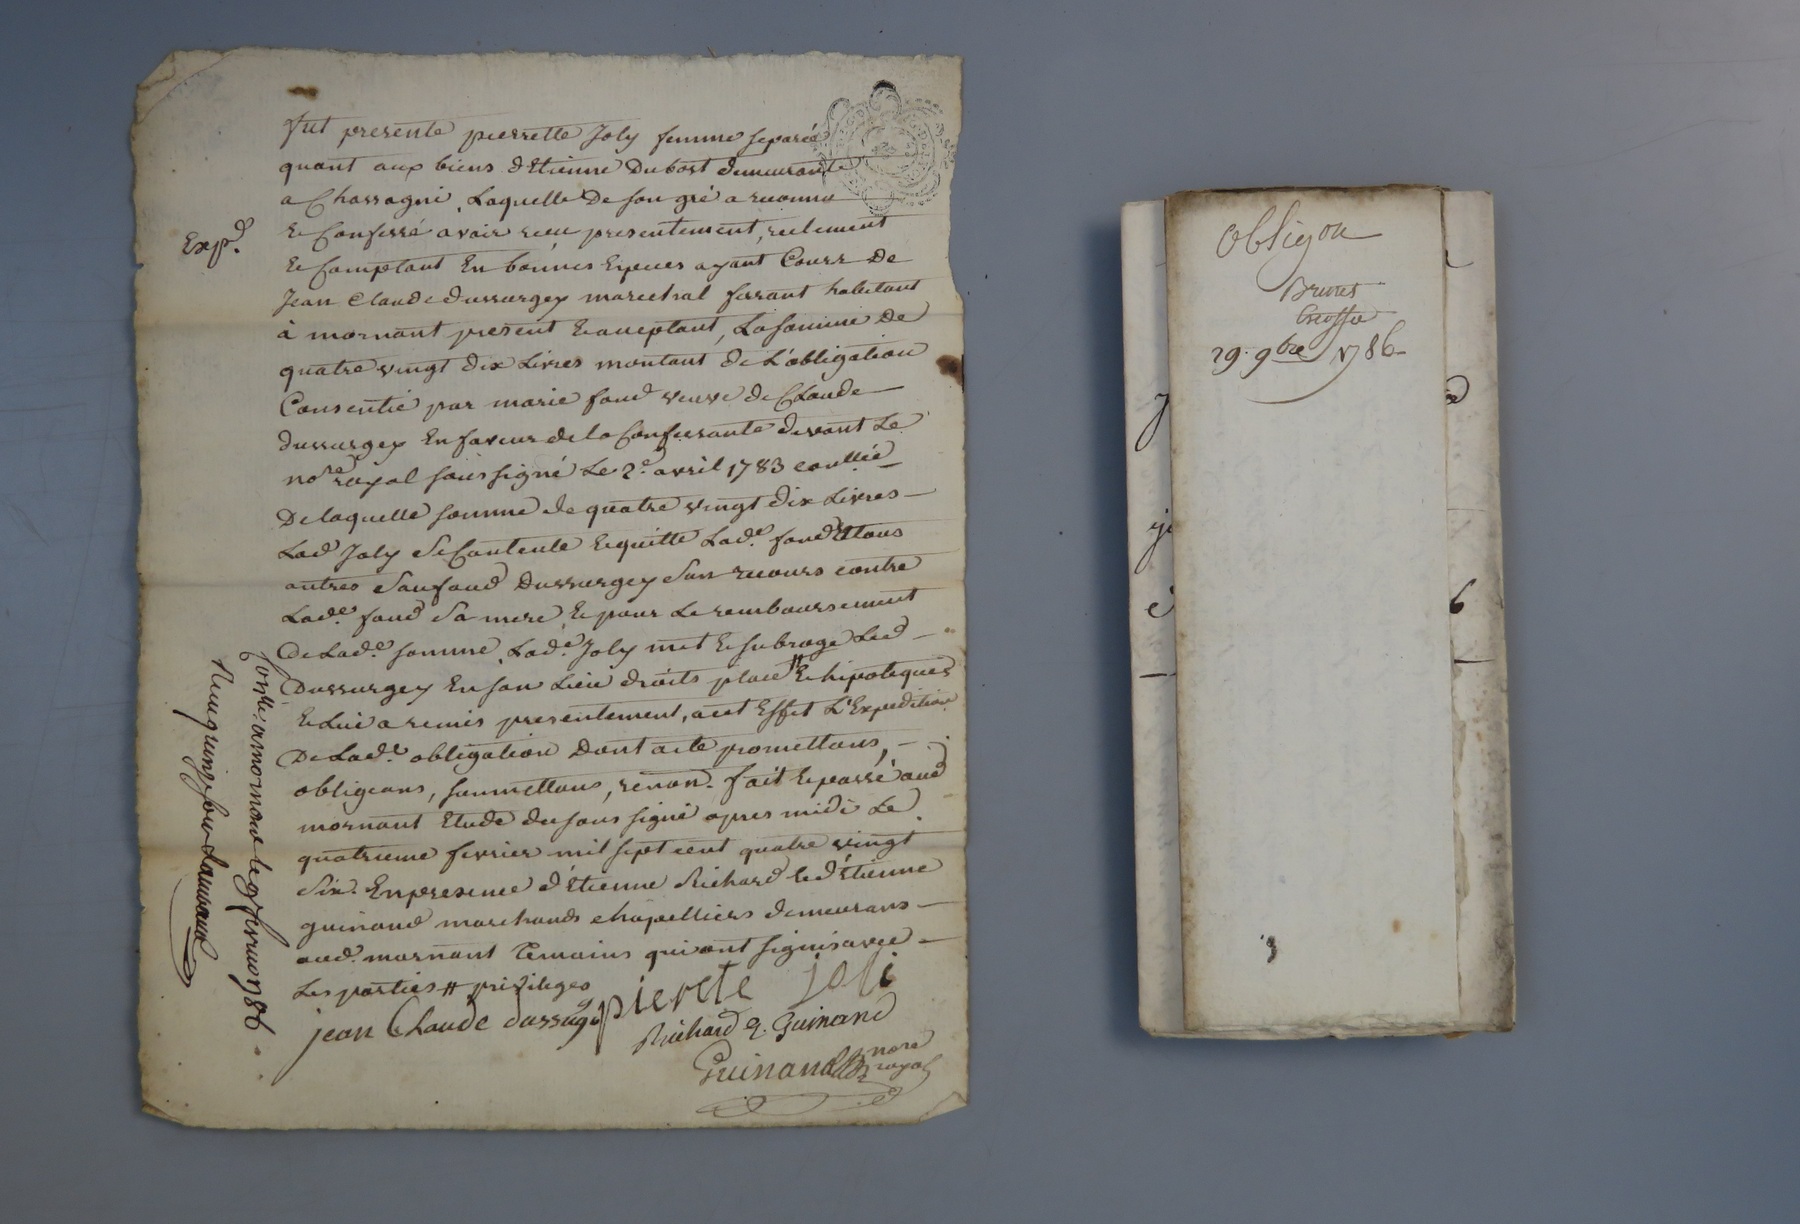 fut presente pierrette Joly femme separée
quant aux biens d'Etienne Dubost demeurante
a Chassagni, Laquelle de son gré a reconnu
Et Confessé avoir recu presentement, reelement
Et Comptant En bonnes Especes ayant Cours De
Jean Claude dussurgey marechal ferrant habitant
à mornant present Et acceptant, La somme De
quatre vingt dix Livres montant de L'obligation
Consentie par marie fond veuve de Claude
dussurgey En faveur de la Confessante devant Le
no.re royal soussigné Le 2.e avril 1783 conllée
De laquelle somme de quatre vingt dix Livres
Lad Joly se Contente Et quitte Lad.e fond Et tous
autres sauf aud Dussurgey son recours contre
Lad.e fond sa mere Et pour Le remboursement
De Lad.e somme, Lad.e Joly met Et subroge Led
Dussurgey En son Lieu droits place # Et hipoteques
Et Lui a remis presentement, a cet Effet L'Expedition
De Lad.e obligation Dont acte promettans,
obligeans, soumettans, renon. fait Et passé aud
mornant Etude du soussigné apres midi Le
quatrieme fevrier mil sept cent quatre vingt
six. En presence d'Etienne Richard Et d'Etienne
guinand marchands chapelliers demeurans
aud. mornant Temoins qui ont signé avec
Les parties # privileges
jean Claude dussurgey pierete joli
Richard E. Guinand
Guinand nore
royal
Exp.d
Con.lle a mornant le 9 fevrier 1786
Recu quinze sous
Obligon
Brunet
29. 9bre 1786